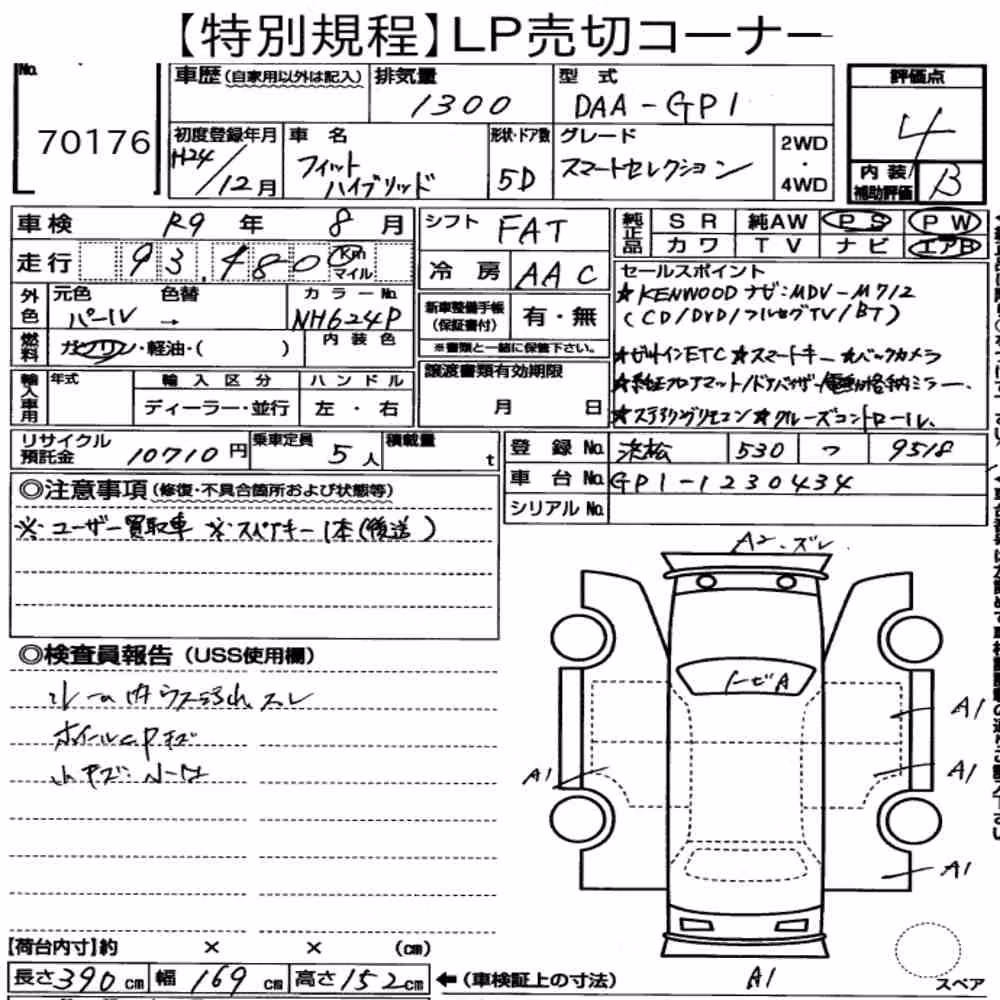 【特別規程】LP売切コーナー
No. 70176
車歴(自家用以外は記入)
排気量 1300
型式 DAA-GP1
評価点 4
内装補助評価 B
初度登録年月 H24/12月
車名 フィット ハイブリッド
形状・ドア数 5D
グレード スマートセレクション
2WD・4WD
車検 R9年 8月
走行 93,480 Km マイル
シフト FAT
冷房 AAC
純正品 SR 純AW PS PW
カワ TV ナビ エアB
外色 元色 パール → 色替
カラーNo. NH624P
燃料 ガソリン・軽油・( )
内装色
新車整備手帳(保証書付) 有・無
※書類と一緒に保管下さい。
セールスポイント
★KENWOODナビ:MDV-M712
(CD/DVD/フルセグTV/BT)
★ビルトインETC★スマートキー★バックカメラ
★純正フロアマット/ドアバイザー/電動格納ミラー.
★ステアリングリモコン★クルーズコントロール、
輸入車用 年式
輸入区分 ディーラー・並行
ハンドル 左・右
譲渡書類有効期限 月 日
リサイクル預託金 10710円
乗車定員 5人
積載量 t
登録No. 浜松 530 つ 9518
車台No. GP1-1230434
シリアルNo.
◎注意事項(修復・不具合箇所および状態等)
※ユーザー買取車 ※スペアキー1本(後送)
◎検査員報告(USS使用欄)
ルームハウス汚れ スレ
A2・ズレ
トビA
A1
A1
A1
A1
A1
スペア
【荷台内寸】約 × × (cm)
長さ390cm 幅169cm 高さ152cm ←(車検証上の寸法)